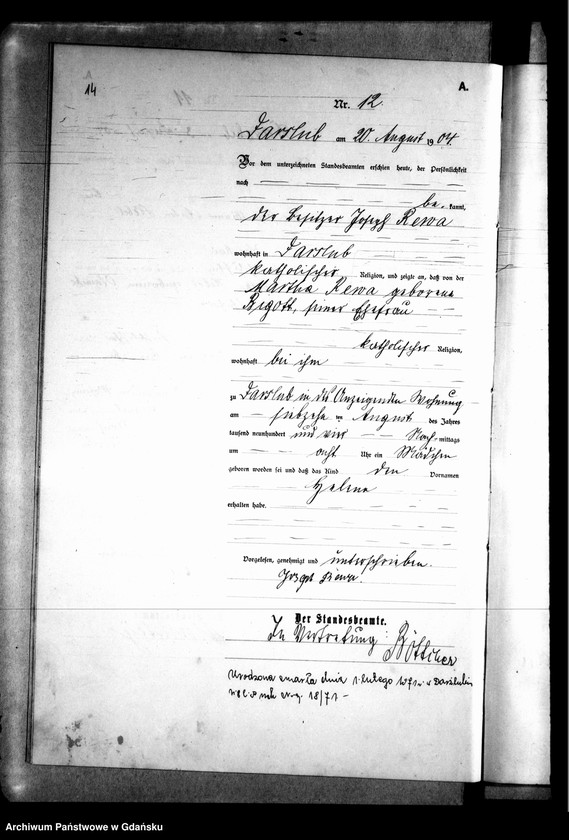 14
A.
Nr. 12.
Darslub am 20. August 1904.
Vor dem unterzeichneten Standesbeamten erschien heute, der Persönlichkeit
nach
be kannt,
der Besitzer Joseph Rewa
wohnhaft in Darslub
katholischer Religion, und zeigte an, daß von der
Martha Rewa geborene
Bigott, seiner Ehefrau
katholischer Religion,
wohnhaft bei ihm
zu Darslub in des Anzeigenden Wohnung
am siebzehn ten August des Jahres
tausend neunhundert und vier Nach mittags
um acht Uhr ein Mädchen
geboren worden sei und daß das Kind den Vornamen
Helene
erhalten habe.
Vorgelesen, genehmigt und unterschrieben.
Joseph Rewa.
Der Standesbeamte.
In Vertretung: Böttcher
Urodzona zmarła dnia 1 lutego 1971 r. w Darzlubiu
18/71 -
Archiwum Państwowe w Gdańsku